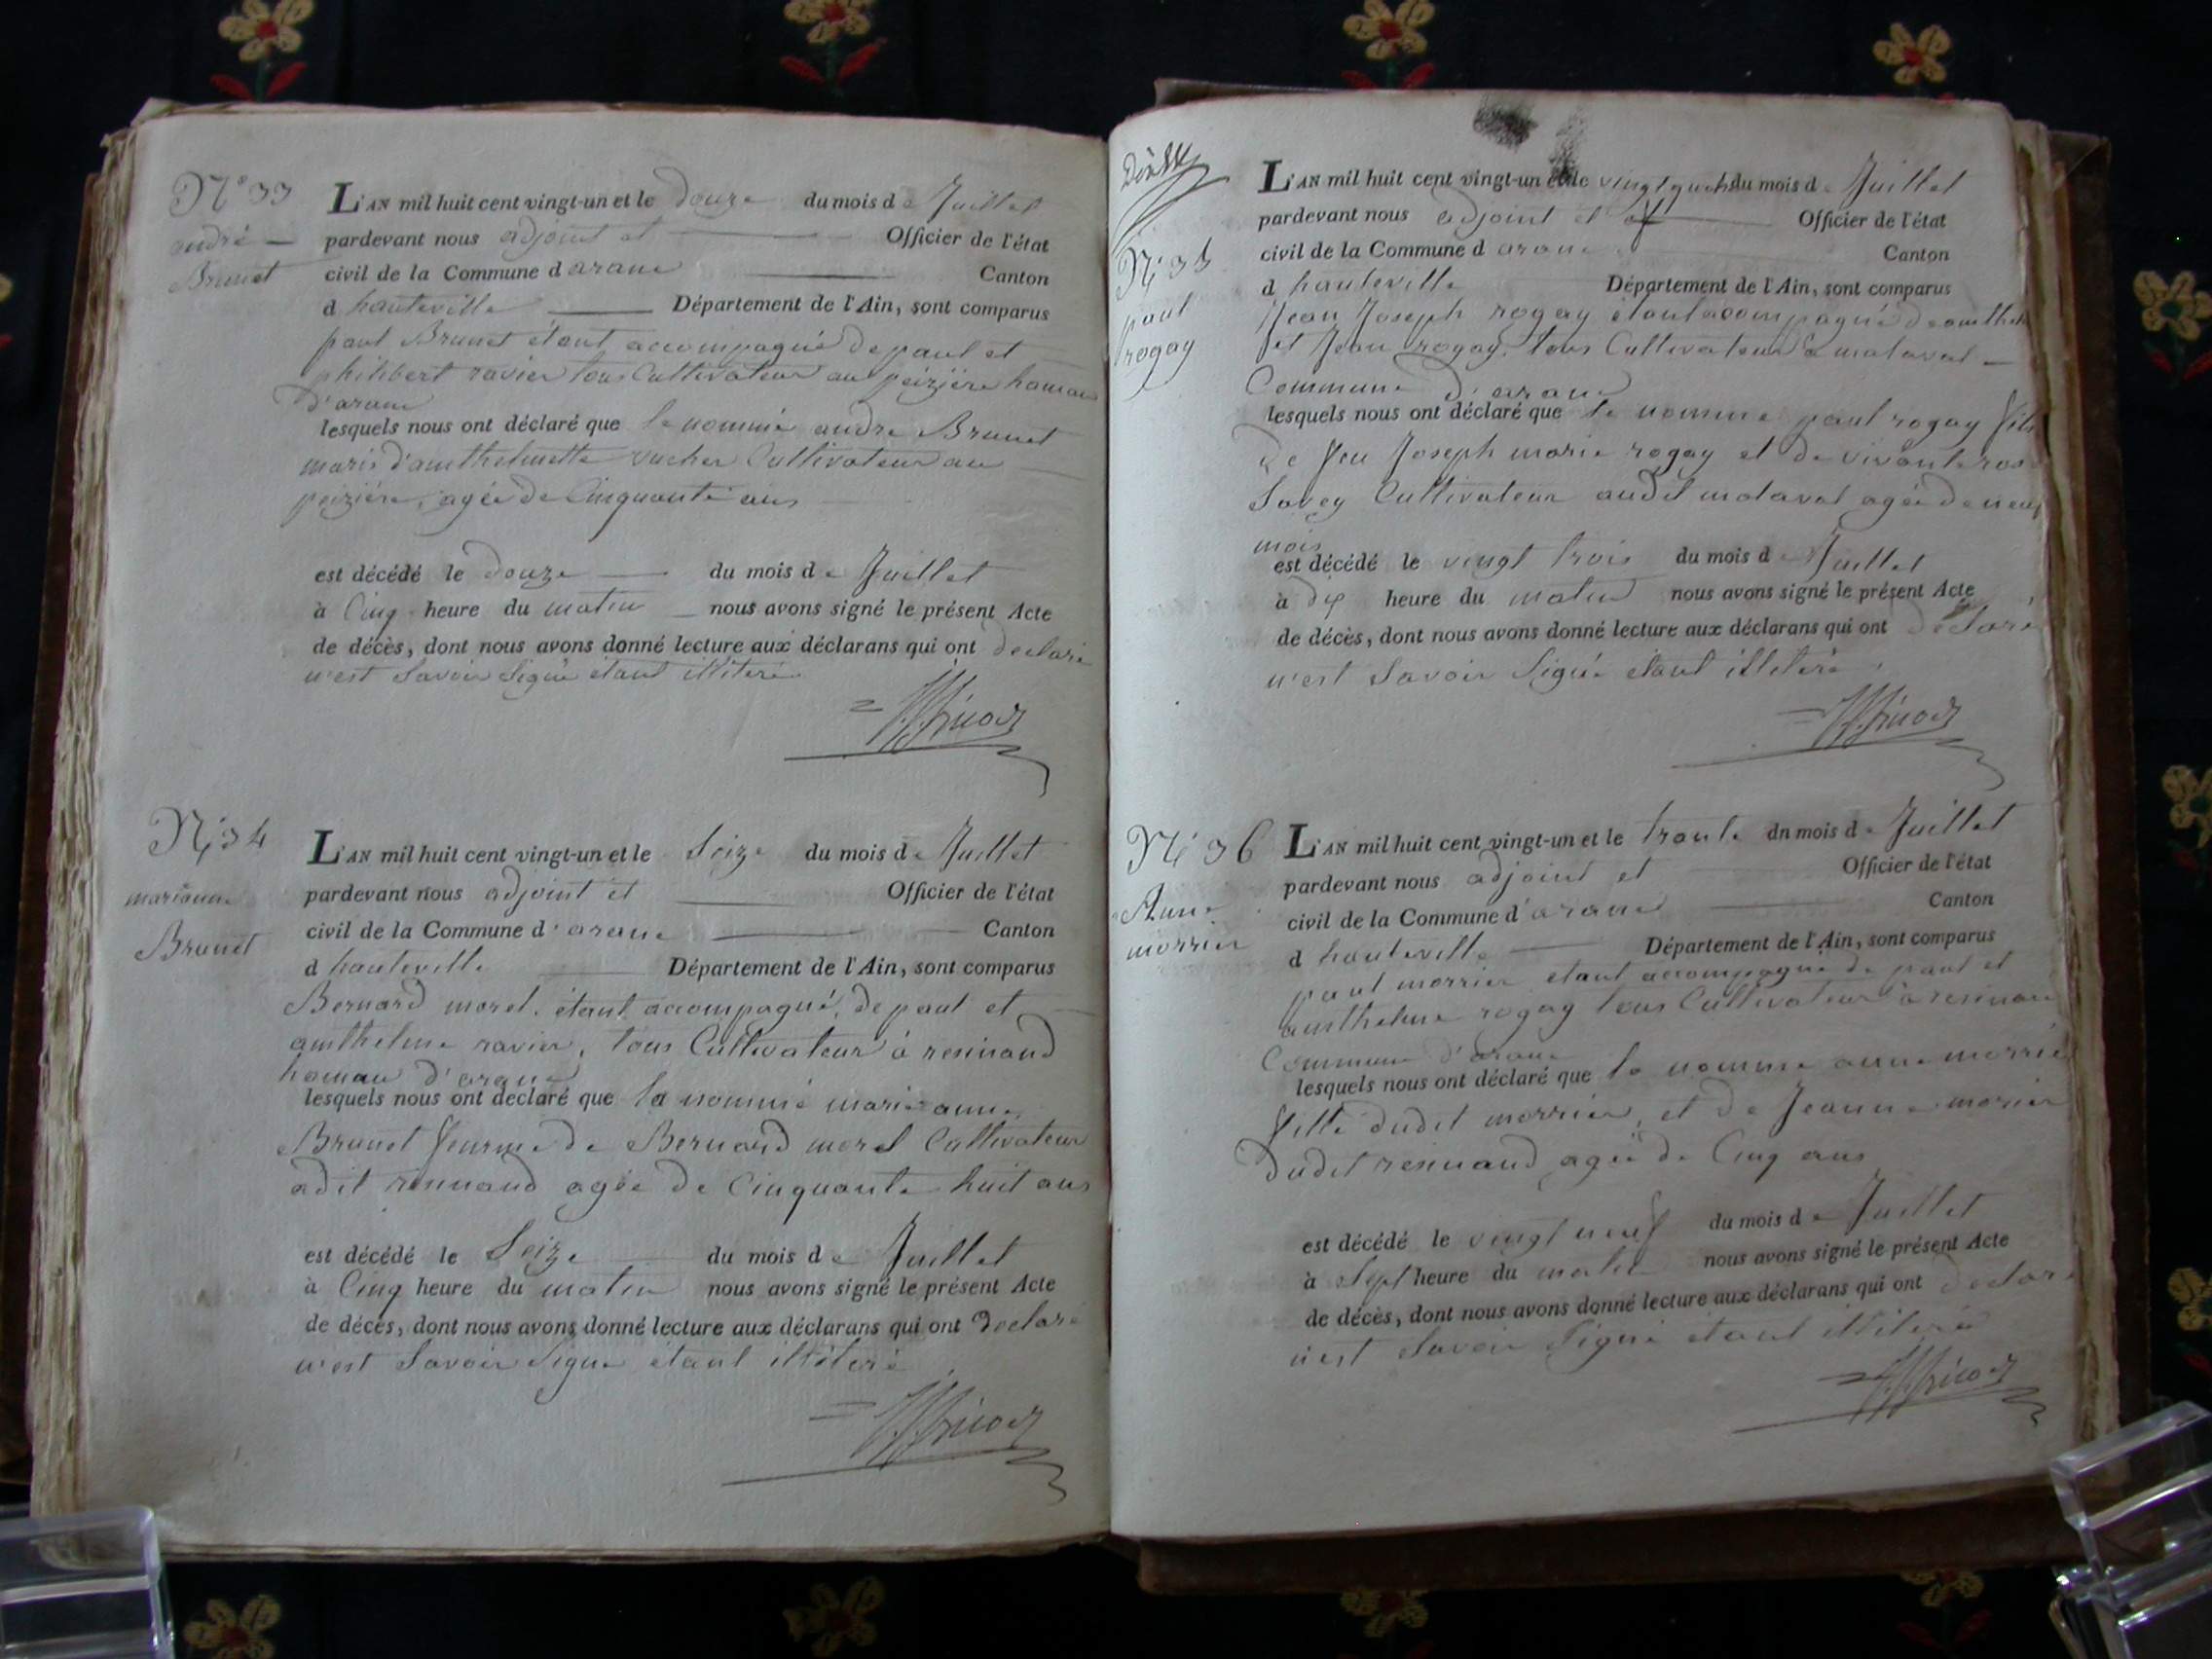 N° 33
andré
Brunet
L'AN mil huit cent vingt-un et le douze du mois de Juillet
pardevant nous adjoint et Officier de l'état
civil de la Commune d arane Canton
d hauteville Département de l'Ain, sont comparus
paul Brunet étant accompagné de paul et
philibert ravier tous Cultivateur au peizière hamau
d'arane
lesquels nous ont déclaré que le nommé andre Brunet
maris d'amthelmette vucher Cultivateur au
peizière, agée de Cinquante ans
est décédé le douze du mois de Juillet
à Cinq heure du matin nous avons signé le présent Acte
de décès, dont nous avons donné lecture aux déclarans qui ont declaré
n'est Savoir Signé étant illiteré
N° 34
marianne
Brunet
L'AN mil huit cent vingt-un et le Seize du mois de Juillet
pardevant nous adjoint et Officier de l'état
civil de la Commune d'arane Canton
d hauteville Département de l'Ain, sont comparus
Bernard morel, étant accompagné, de paul et
amthelme ravier, tous Cultivateur à resinand
hamau d'arane
lesquels nous ont déclaré que la nommé marie anne
Brunet femme de Bernard morel Cultivateur
adit resinand agée de Cinquante huit ans
est décédé le Seize du mois de Juillet
à Cinq heure du matin nous avons signé le présent Acte
de décès, dont nous avons donné lecture aux déclarans qui ont declaré
n'est Savoir Signé étant illiteré
N° 35
paul
rogay
L'AN mil huit cent vingt-un et le vingt quatre du mois de Juillet
pardevant nous adjoint et off Officier de l'état
civil de la Commune d arane Canton
d hauteville Département de l'Ain, sont comparus
Jean Joseph rogay étant acompagné d'amthelme
et Jean rogay, tous Cultivateur à malaval
Commune d'arane
lesquels nous ont déclaré que le nommé paul rogay fils
de feu Joseph marie rogay et de vivante rose
Savey Cultivateur audit malaval agée de neuf
mois
est décédé le vingt trois du mois de Juillet
à dix heure du matin nous avons signé le présent Acte
de décès, dont nous avons donné lecture aux déclarans qui ont déclaré
n'est Savoir Signé étant illiteré
N° 36
Anne
morrier
L'AN mil huit cent vingt-un et le trante dn mois de Juillet
pardevant nous adjoint et Officier de l'état
civil de la Commune d'arane Canton
d hauteville Département de l'Ain, sont comparus
paul morrier étant accompagné de paul et
amthelme rogay tous Cultivateur à resinan
Commune d'arane
lesquels nous ont déclaré que la nommé anne morrier
fille dudit morrier, et de Jeanne morier
dudit resinand agée de Cinq ans
est décédé le vingt neuf du mois de Juillet
à Sept heure du matin nous avons signé le présent Acte
de décès, dont nous avons donné lecture aux déclarans qui ont declaré
n'est Savoir Signé étant illiteré